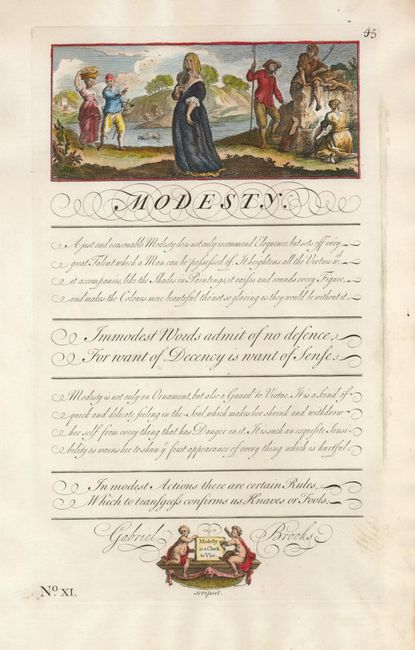 45
MODESTY.
A just and reasonable Modesty does not only recommend Eloquence, but sets off every
great Talent which a Man can be possessed of. It heightens all the Virtues wch
it accompanies, like the Shades in Paintings, it raises and rounds every Figure,
and makes the Colours more beautiful tho' not so glaring as they would be without it.
Immodest Words admit of no defence,
For want of Decency is want of Sense.
Modesty is not only an Ornament, but also a Guard to Virtue. It is a kind of
quick and delicate feeling in the Soul, which makes her shrink and withdraw
her self from every thing that has Danger in it. It is such an exquisite Sensi-
bility as warns her to shun ye first appearance of every thing which is hurtful.
In modest Actions there are certain Rules,
Which to transgress confirms us Knaves or Fools.
Gabriel Brooks
Modesty
is a Check
to Vice.
scripsit.
No. XI.